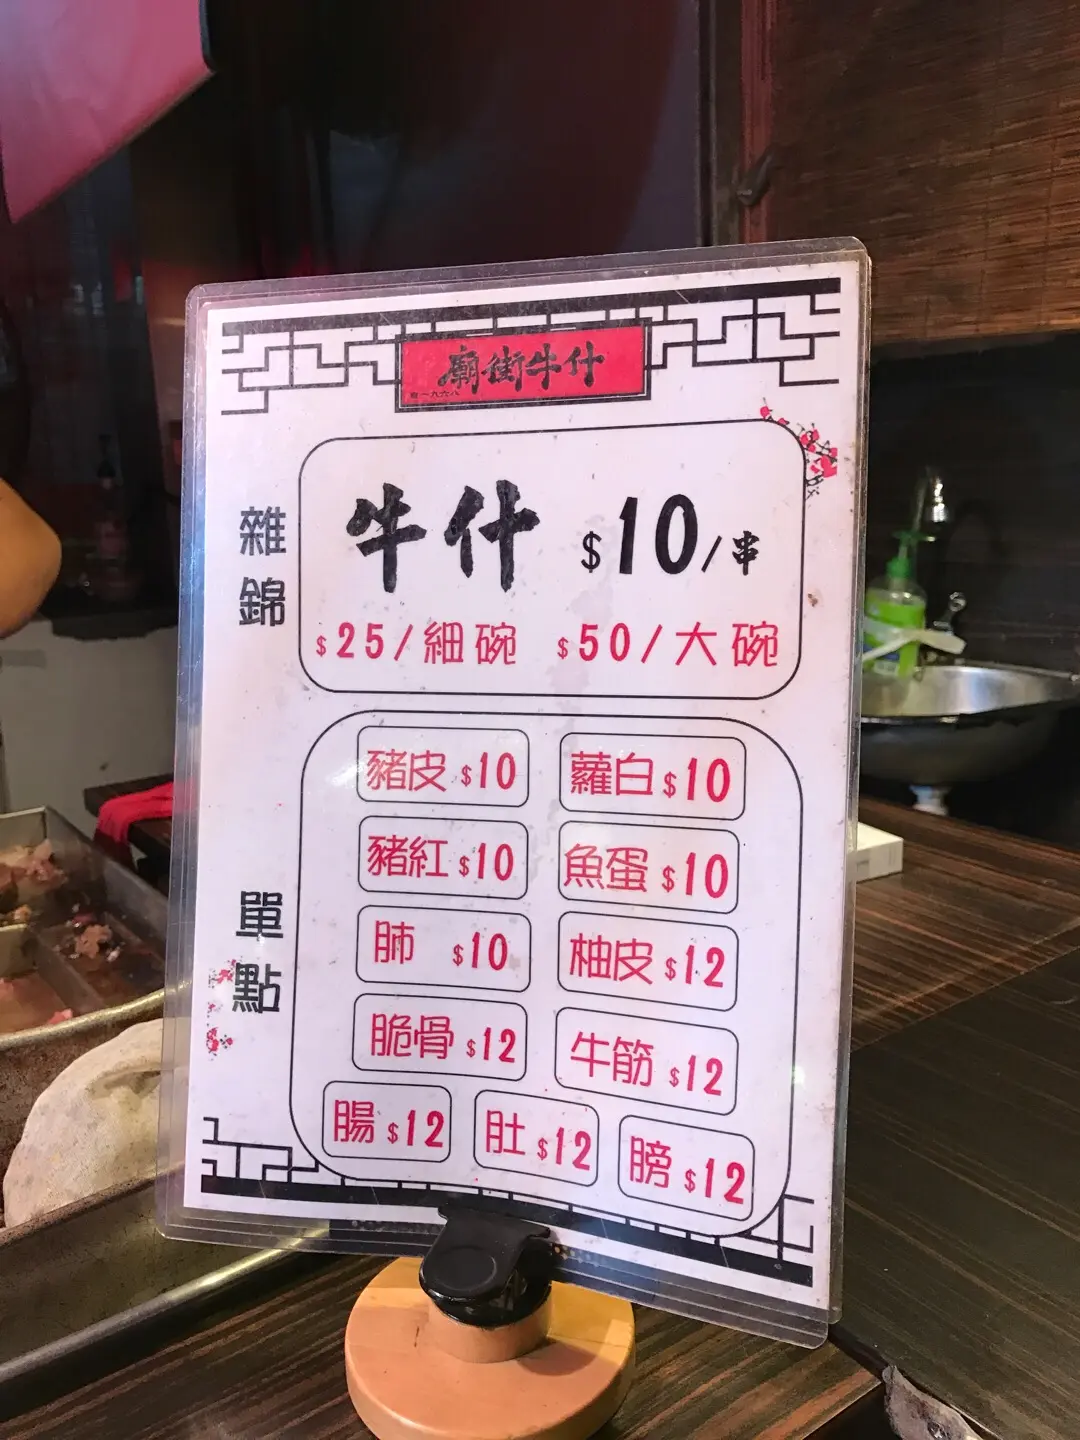 廟街牛什
雜錦
牛什 $10/串
$25/細碗 $50/大碗
單點
豬皮 $10 蘿白 $10
豬紅 $10 魚蛋 $10
肺 $10 柚皮 $12
脆骨 $12 牛筋 $12
腸 $12 肚 $12 膀 $12